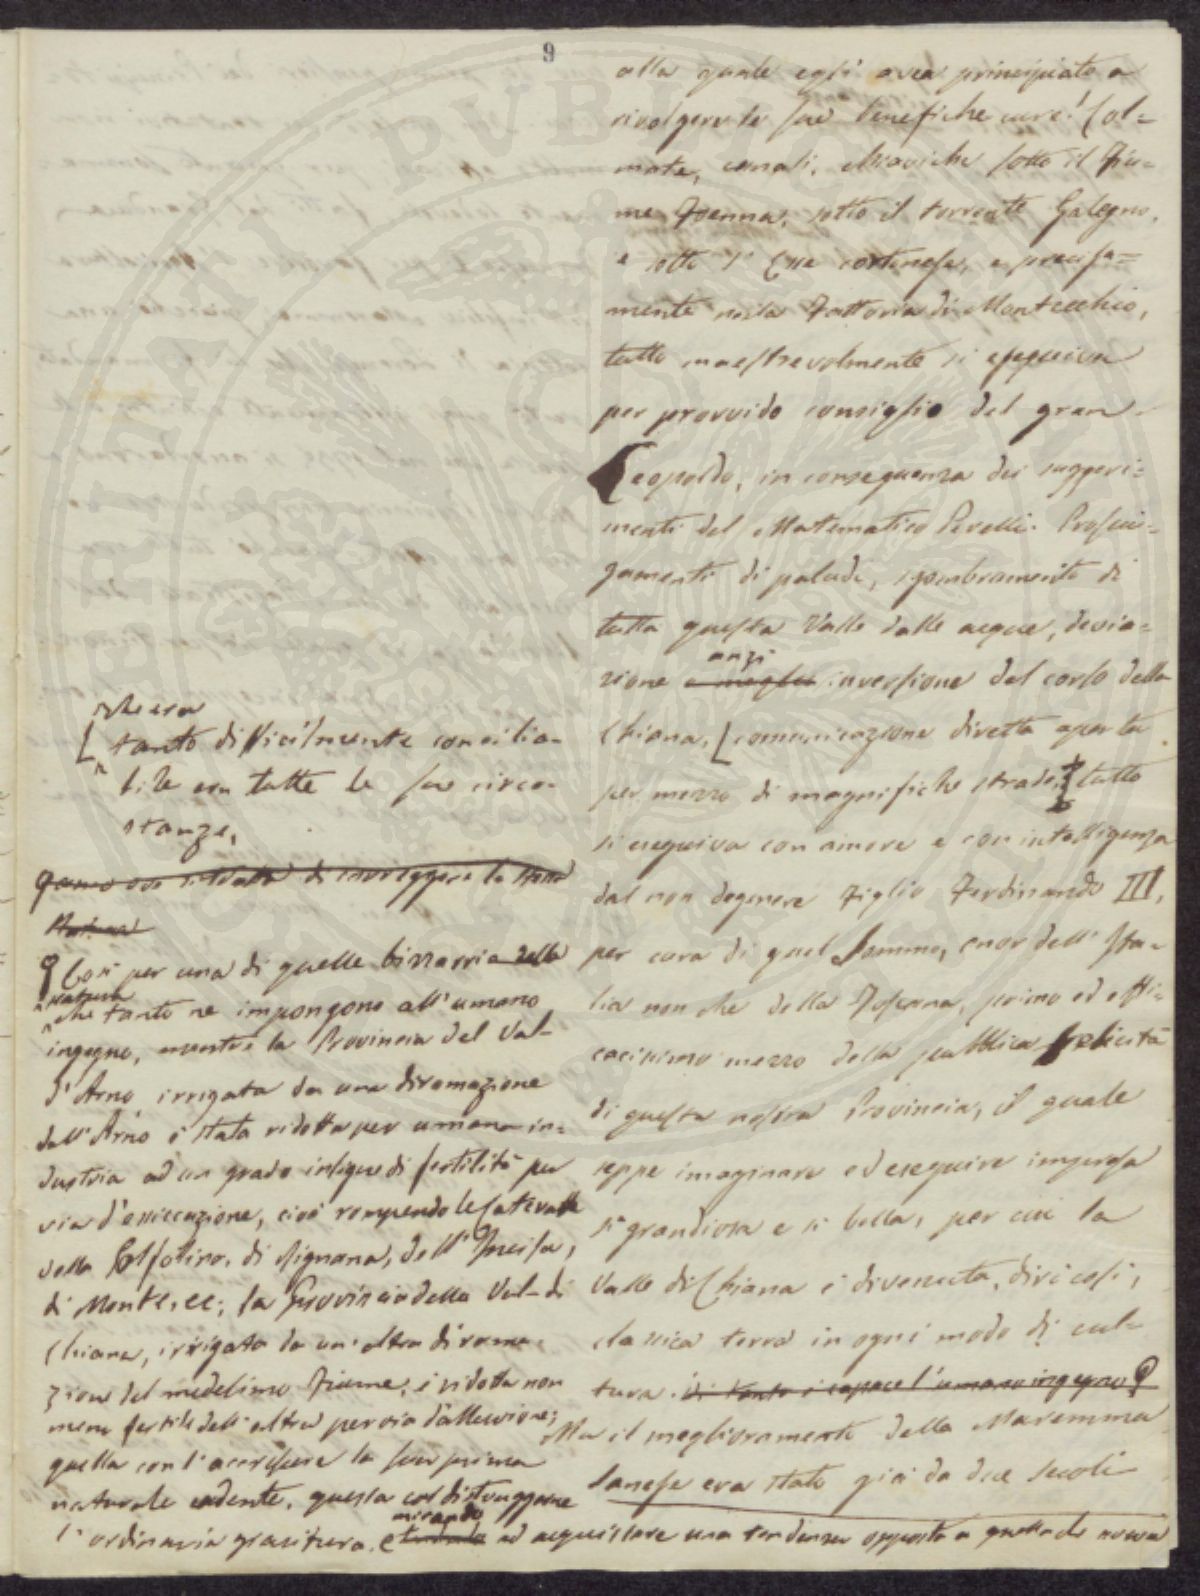 9
alla quale egli avea principiato a
rivolgere le sue benefiche cure! Col=
mate, canali, chiaviche sotto il Fiu=
me Foenna, sotto il torrente Galegno,
e sotto l' Esse cortonese, e precisa=
mente nella Fattoria di Montecchio,
tutto maestrevolmente si eseguiva
per provvido consiglio del gran
Leopoldo, in conseguenza dei suggeri=
menti del Matematico Perelli. Prosciu=
gamenti di paludi, sgombramento di
tutta questa Valle dalle acque, devia=
anzi
zione o meglio inversione del corso della
Chiana, [comunicazione diretta aperta
per mezzo di magnifiche strade, tutto
si eseguiva con amore e con intelligenza
dal non degenere Figlio Ferdinando III,
per cura di quel Sommo, onor dell' Ita=
lia non che della Toscana, primo ed effi=
cacissimo mezzo della pubblica felicità
di questa nostra Provincia, il quale
seppe imaginare ed eseguire impresa
sì grandiosa e sì bella, per cui la
Valle di Chiana è divenuta, dirò così,
classica terra in ogni modo di cul=
tura. di tanto è capace l'umano ingegno?
Ma il miglioramento della Maremma
Sanese era stato già da due secoli
che era
[tanto difficilmente concilia=
bile con tutte le sue circo=
stanze,
Così per una di quelle bizzarrie della
natura
che tanto ne impongono all' umano
ingegno, mentre la Provincia del Val=
d'Arno irrigata da una diramazione
dell' Arno è stata ridotta per umana in=
dustria ad un grado insigne di fertilità per
via d'essiccazione, cioè rompendo le cateratte
della Golfolina, di Rignano, dell' Incisa,
di Monte, ec; la Provincia della Val=di
Chiana, irrigata da un'altra dirama=
zione del medesimo Fiume, è ridotta non
meno fertile dell' altra per via d'alluvione;
quella con l'accrescere la sua prima
naturale cadente, questa col distruggerne
mirando
l' ordinaria giacitura, e tendendo ad acquistare una tendenza opposta a quella di nuova